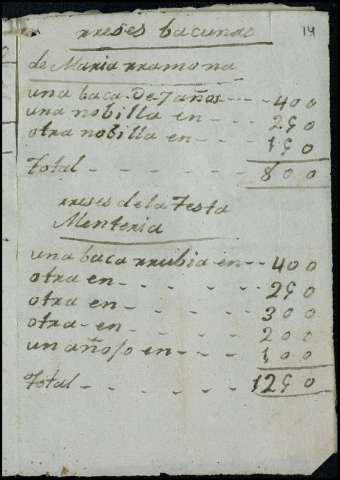 rreses bacunas
14
de Maria rramona
una baca De 7 años - - - 400
una nobilla en - - - 250
otra nobilla en - - - 150
Total - - - - 800
rreses de la Testa
Menteria
una baca rrubia en - - 400
otra en - - - - 250
otra en - - - - 300
otra - en - - - - 200
un año/o en - - - 100
Total - - - - - 1250